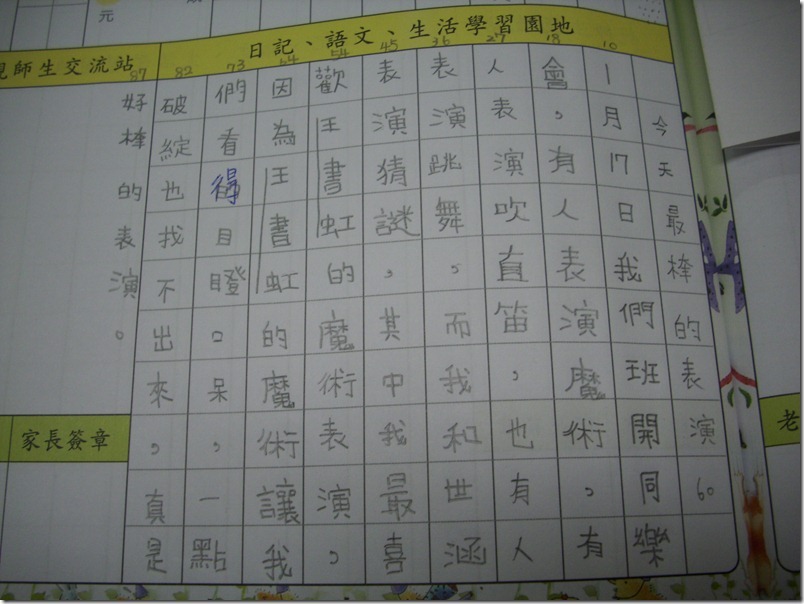 元
日記、語文、生活學習園地
師生交流站
10 18 27 36 45 54 64 73 82 87
今天最棒的表演60
1月17日我們班開同樂
會,有人表演魔術,有
人表演吹直笛,也有人
表演跳舞,而我和世涵
表演猜謎,其中我最喜
歡王書虹的魔術表演,
因為王書虹的魔術讓我
們看得目瞪口呆,一點
破綻也找不出來,真是
好棒的表演。
家長簽章
老